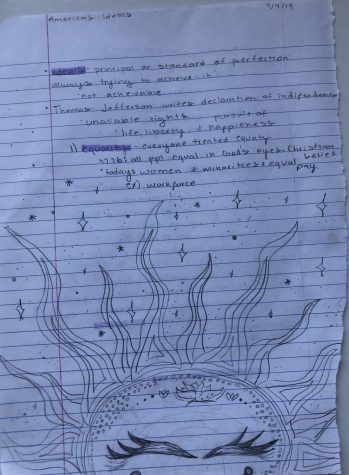 Americas Ideals 9/4/19
• Ideals - principal or standard of perfection
always trying to acheive it
• not acheivable
• Thomas Jefferson writes declaration of independence
unaliable rights pursuit of
• life, liberty & happieness
1) Equality - everyone treated equaly
• 1776: all ppl equal in God's eyes, Christian belief
• today: women & minorities equal pay
ex) workforce